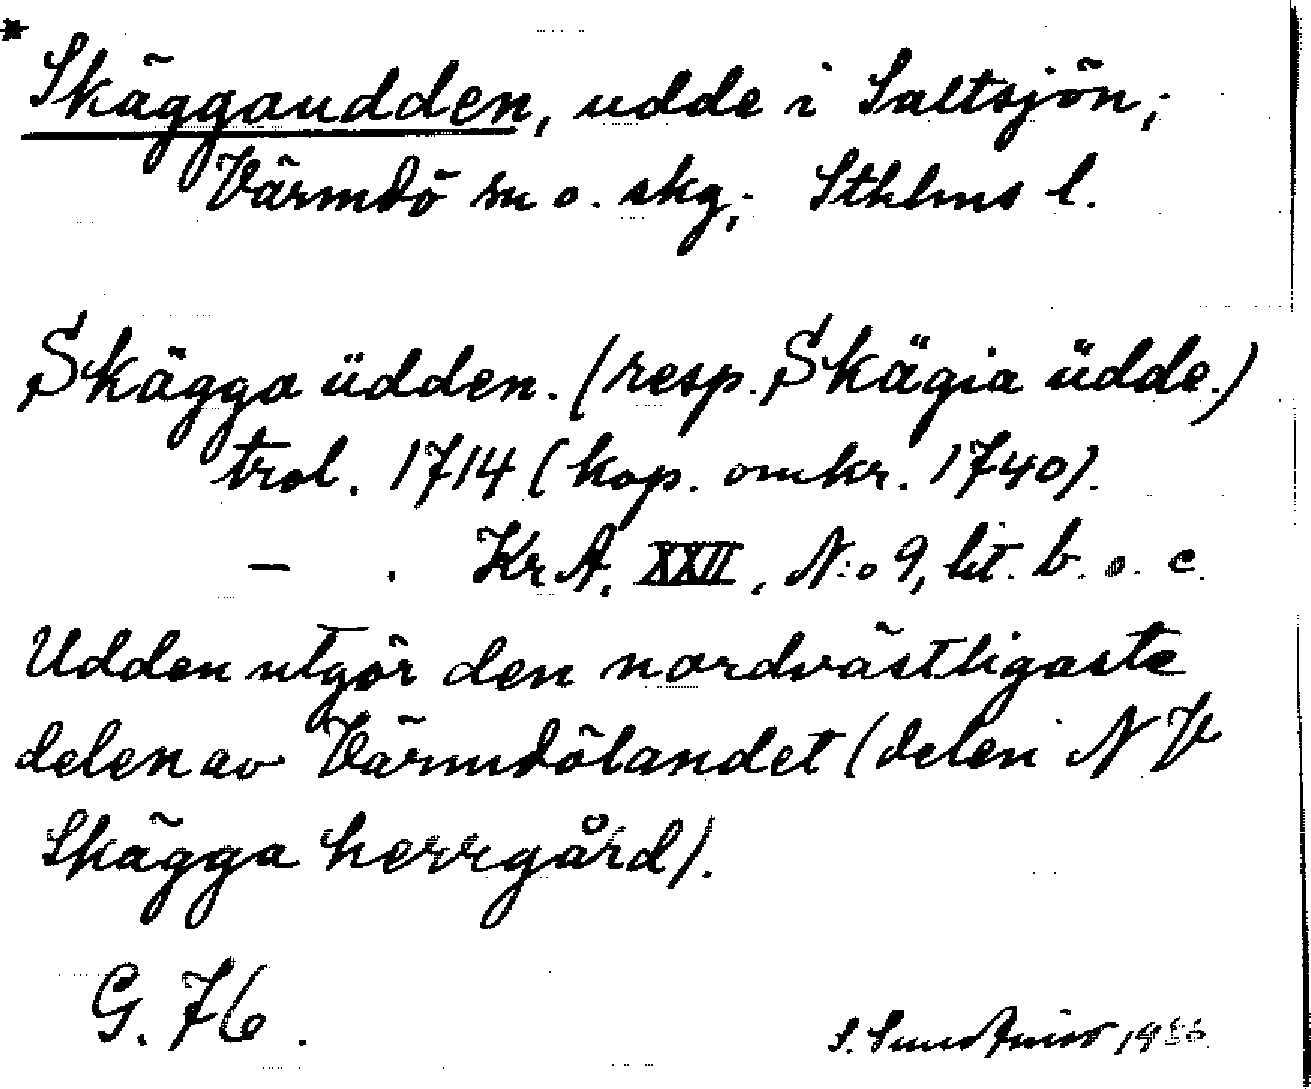 * Skäggaudden, udde i Saltsjön;
Värmdö sn o. skg; Sthlms l.
Skägga üdden. (resp. Skägia üdde.)
trol. 1714 (kop. omkr. 1740).
— . Kr.A. XXII, N:o 9, lit. b. o. c.
Udden utgör den nordvästligaste
delen av Värmdölandet (delen N V
Skägga herrgård).
G. 76.
S.